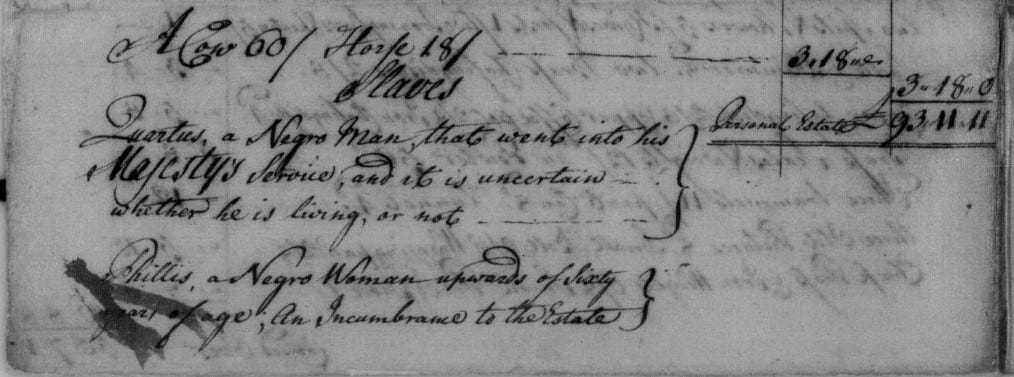 A Cow 60/ Horse 18/ 3"18"0
3"18"0
Slaves
Personal Estate £93"11"11
Quartus, a Negro Man, that went into his
Majesty's Service, and it is uncertain
whether he is living, or not
Phillis, a Negro Woman upwards of Sixty
years of age; An Incumbrance to the Estate